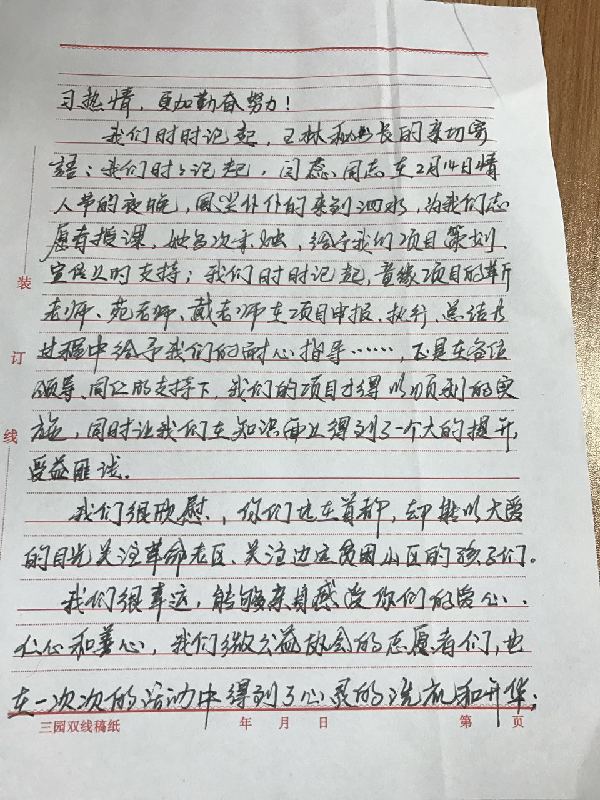 习热情，更加勤奋努力！
我们时时记起，王林秘书长的亲切寄
语；我们时时记起，闫蕊同志在2月14日情
人节的夜晚，风尘仆仆的来到泗水，为我们志
愿者授课，她多次来，给予我们项目策划、
宣传上的支持；我们时时记起，童缘项目的靳
老师、苑老师、戴老师在项目申报、执行、总结
过程中给予我们的耐心指导……，正是在各位
领导、同仁的支持下，我们的项目才得以顺利的实
施，同时让我们在知识面上得到了一个大的提升，
受益匪浅。
我们很欣慰，你们地在首都，却能以大爱
的目光关注革命老区、关注边远贫困山区的孩子们。
我们很幸运，能够亲身感受你们的爱心、
仁心和善心，我们微公益协会的志愿者们，也
在一次次的活动中得到了心灵的洗礼和升华；
装
订
线
三园双线稿纸 年 月 日 第 页